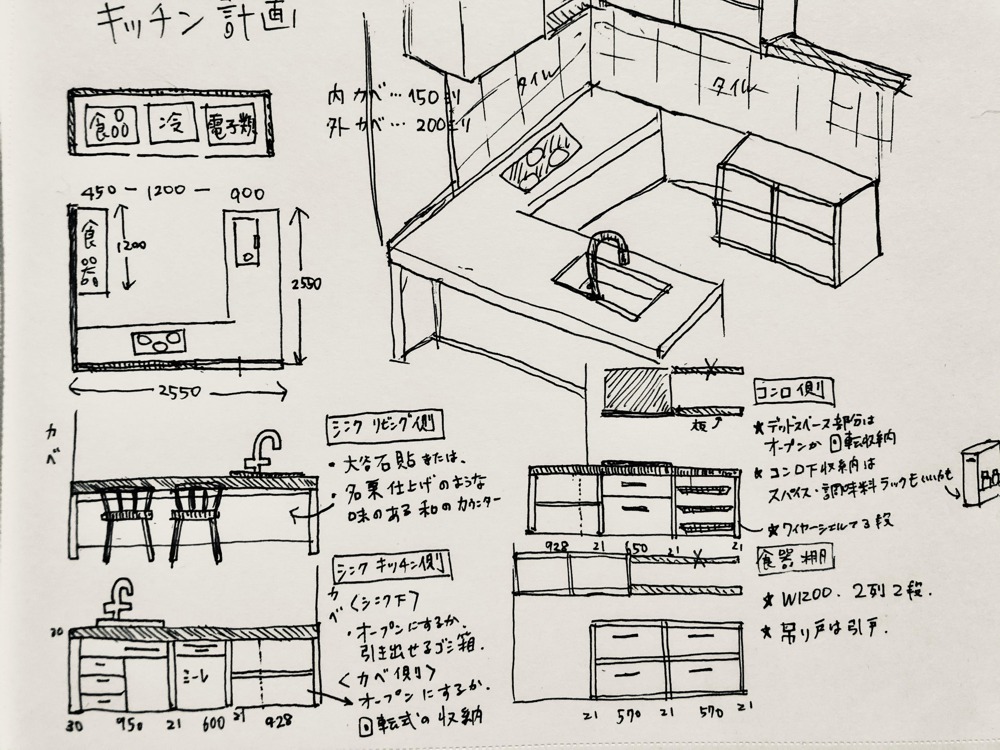 キッチン計画
食器 冷 電子類
450 - 1200 - 900
食器
1200
2550
2550
内カベ…150ミリ
外カベ…200ミリ
タイル
タイル
カベ
シンク リビング側
・大谷石貼または、
・名栗仕上げのような
味のある和のカウンター
シンク キッチン側
カベ
〈シンク下〉
・オープンにするか、
引き出せるゴミ箱.
〈カベ側〉
オープンにするか.
回転式の収納
30
ミーレ
30 950 21 600 21 928
コンロ側
板
★デッドスペース部分は
オープンか回転収納
★コンロ下収納は
スパイス・調味料ラックもいいかも
★ワイヤーシェルフ3段
928 21 650 21 21
食器棚
★ W1200. 2列2段.
★ 吊り戸は引戸.
21 570 21 570 21